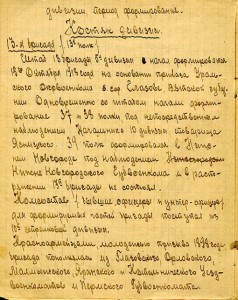 дивизии период формирования.
Костяк дивизии.
13-я бригада /13 полк/
Штаб 13 бригады 5й дивизии начал формироваться
12го Октября 1918 года на основании приказа Ураль-
ского Окрвоенкома в гор. Глазове Вятской гу-
бернии Одновременно со штабом начали форми-
рование 37 и 38 полки под непосредственным
наблюдением Начальника 10 дивизии товарища
39 полк формировался в Ниж-
нем Новгороде под наблюдением
Нижне Новгородского Губвоенкома и в рас-
поряжении 13й бригады не состоял.
Комсостав / бывшие офицеры и унтер-офицеры/
для формируемых частей бригады поступал из
10 стрелковой дивизии.
Красноармейцами молодыми призыва 1898 года
бригада пополнялась из Глазовского Орловского,
Малмыжского, Яранского и Котельнического Уезд-
военкоматов и Пермского Губвоенкомата.